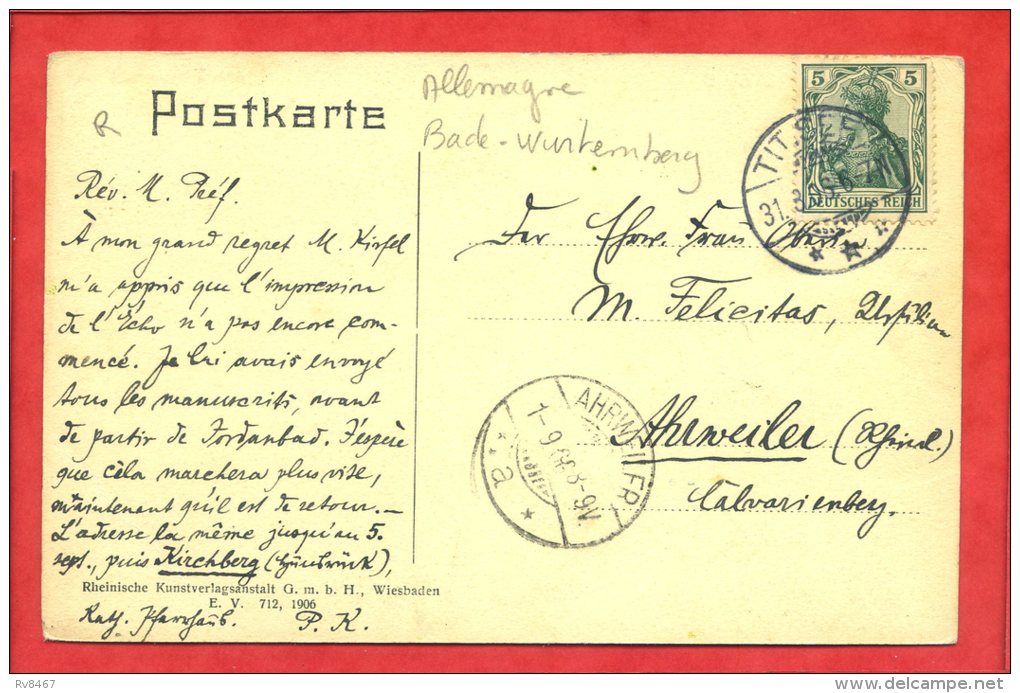 Postkarte
Allemagne
Bade-Wurtemberg
5 5
DEUTSCHES REICH
TITISEE
31.
Rév. M. Préf.
À mon grand regret M. Kirfel
m'a appris que l'impression
de l'Écho n'a pas encore com-
mencé. Je lui avais envoyé
tous les manuscrits, avant
de partir de Jordanbad. J'espère
que cela marchera plus vite,
maintenant qu'il est de retour.—
L'adresse la même jusqu'au 5.
sept., puis Kirchberg (Hunsrück),
Rheinische Kunstverlagsanstalt G. m. b. H., Wiesbaden
E. V. 712, 1906
Kath. Pfarrhaus. P. K.
Der Ehrw. Frau Oberin
M. Felicitas,
Ahrweiler (Rheinl.)
Calvarienberg.
AHRWEILER
1-9 8-9N
* * a *
Rv8467
delcampe.net